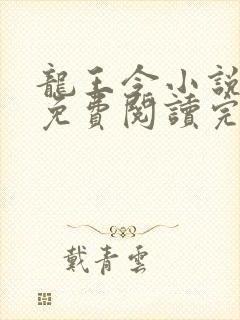 龍王令小說
免費閱讀完
戴青雲